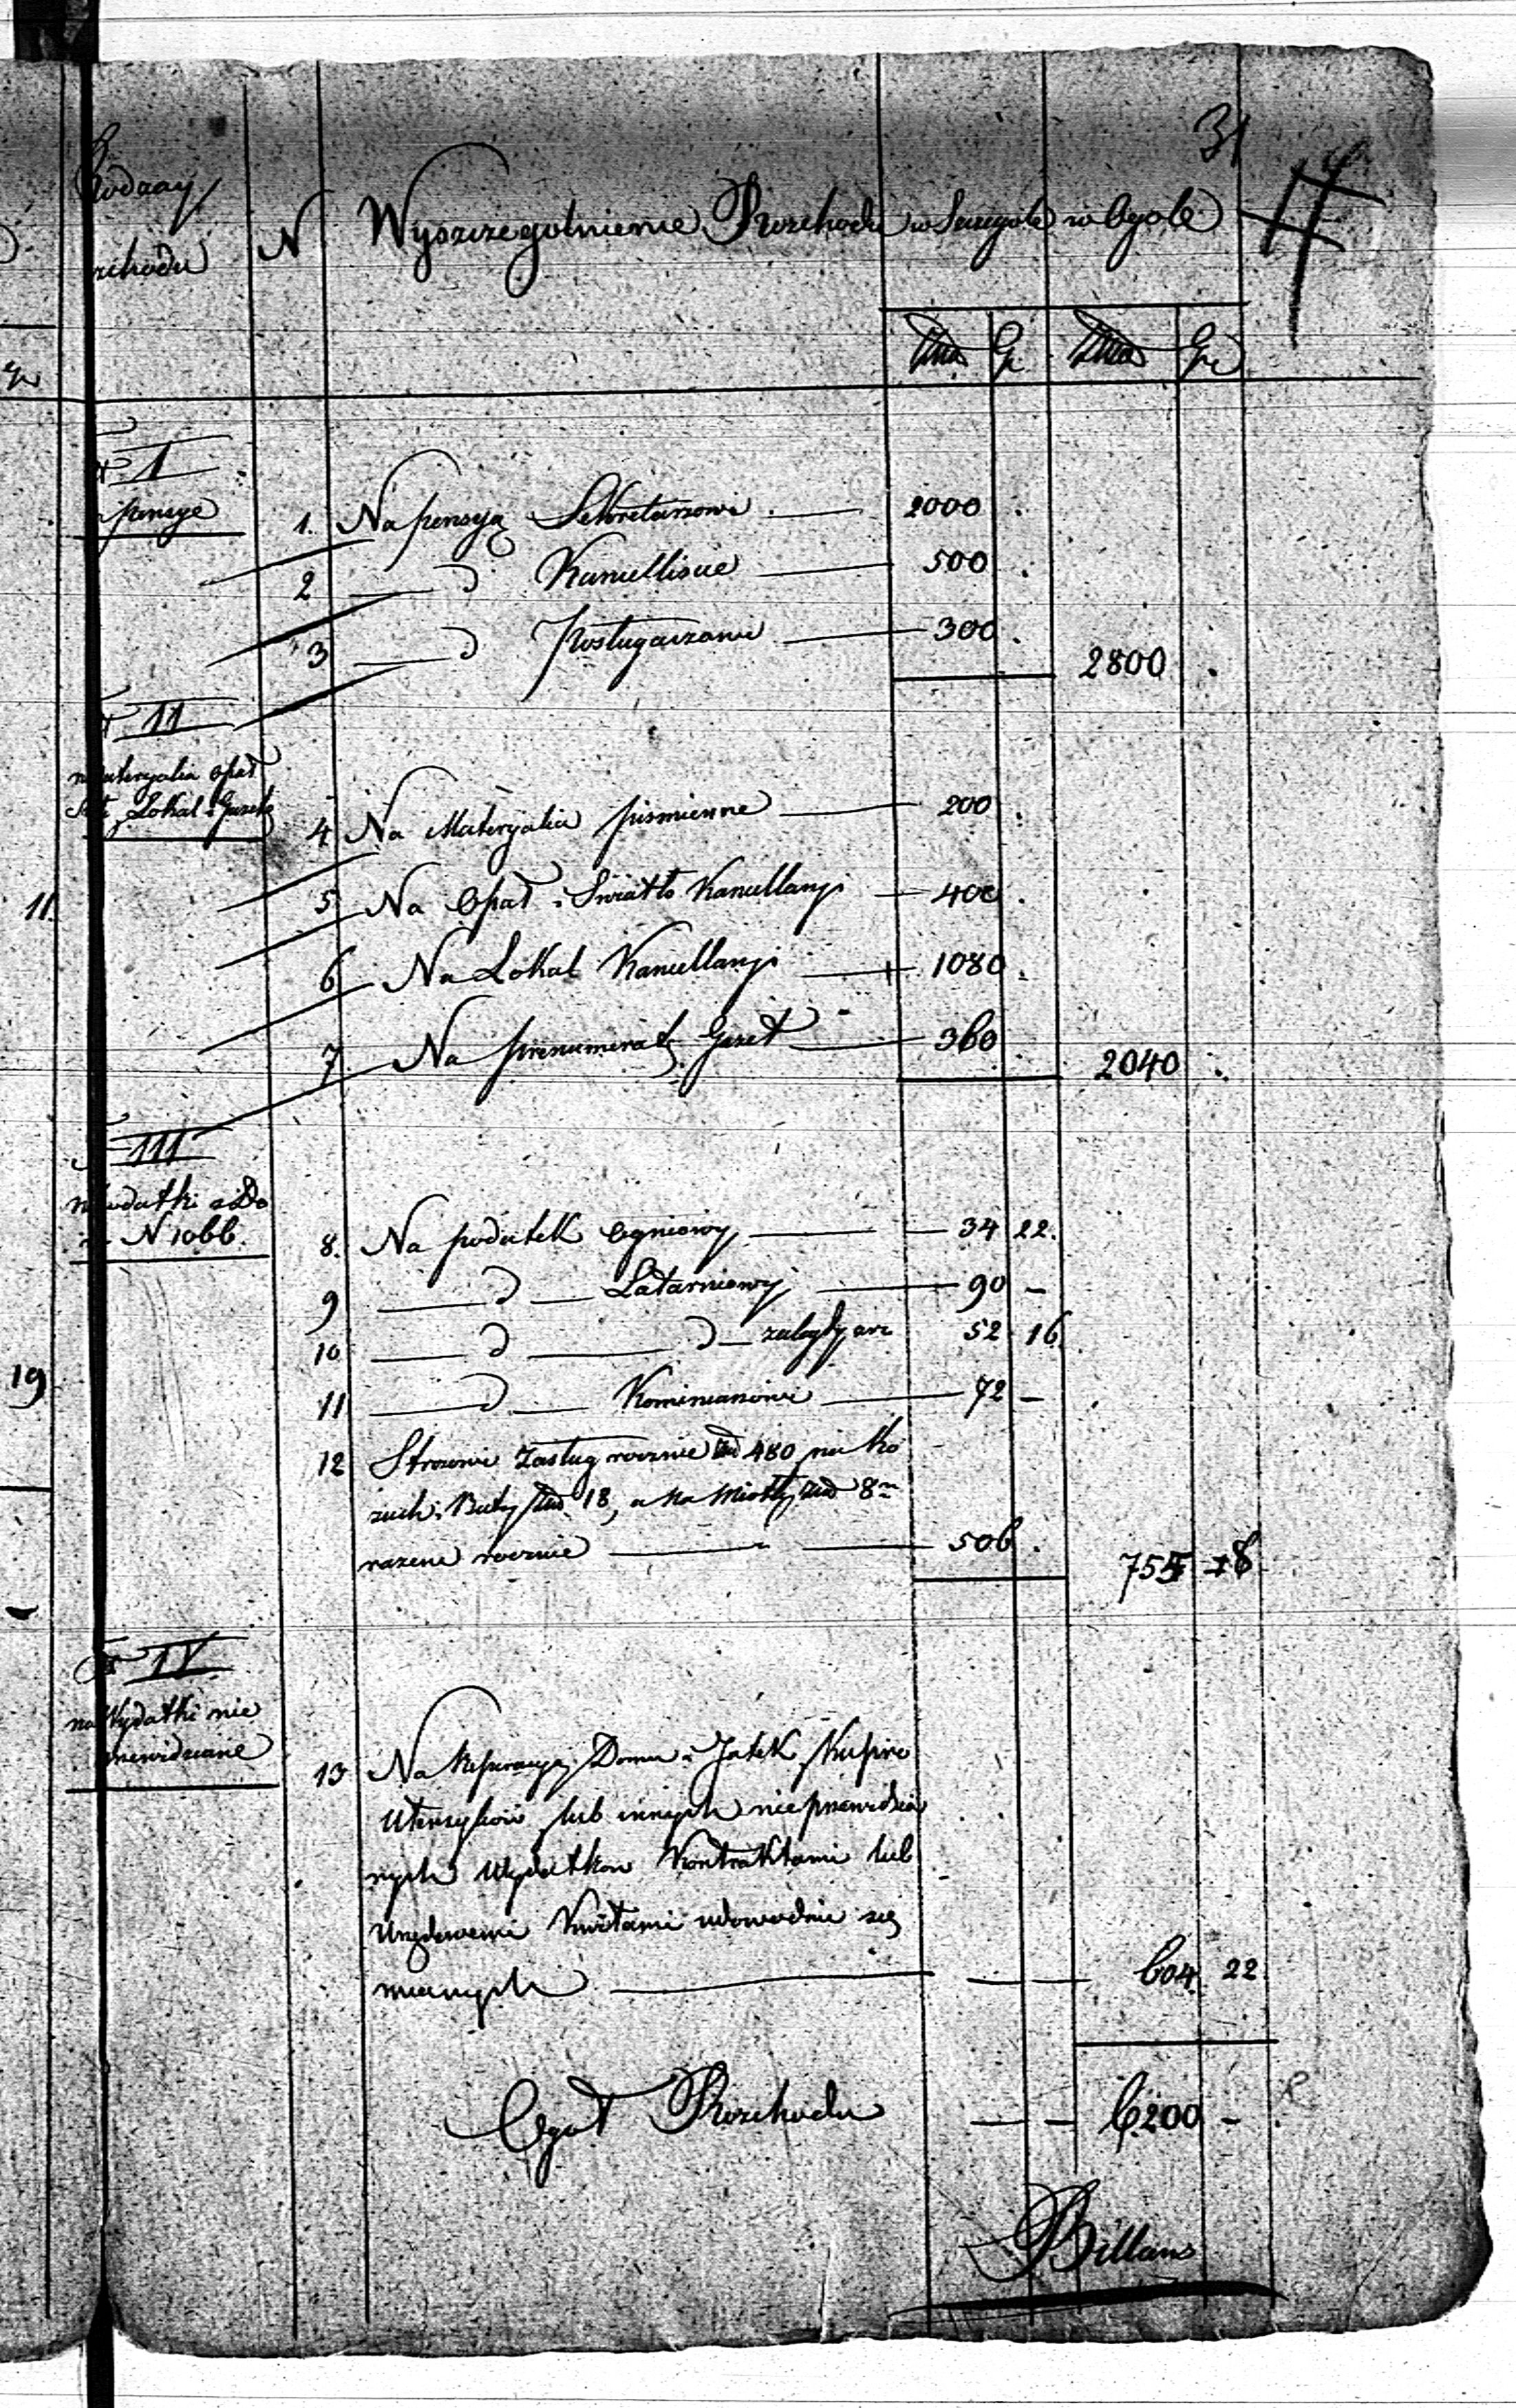 31
Rodzay
rchodu
N
Wyszczegolnienie Rozchodu
w Szczegole
w Ogole
Gr
Gr
I
pensye
1. Na pensyą Sekretarzowi 2000
2 d Kancelliscie 500
3 d Posługaczowi 300
2800
II
materyalia opał
Lokal i Gazety
4 Na Materyalia pismienne 200
5 Na Opał i Swiatło Kancellaryi 400
6 Na Lokal Kancellaryi 1080
7. Na prenumeratę Gazet 360
2040
III
podatki z Do
N 1066.
8. Na podatek Ogniowy 34 22.
9 d Latarniowy 90 —
10 d d zaległy 52 16
11 d Kominiarzowi 72 —
12 Strozowi Zasług rocznie 480 na ko
zuch i Buty 18, a na Miotły 8
razem rocznie 506
754 8
IV
na Wydatki nie
przewidziane
13 Na Reperacyę Domu i Jatek, Kupno
Utensyliow lub innych nieprzewidzia
nych Wydatkow Kontraktami lub
Urzędowemi Kwitami udowodnić się
mianych
604 22
Ogoł Rozchodu — — 6200 —
Billans
11.
19